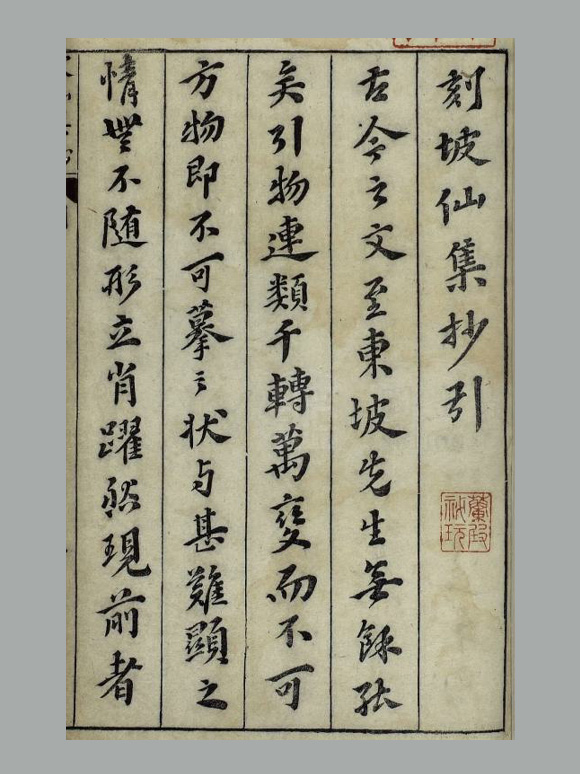 刻坡仙集抄引
古今之文至東坡先生無餘能
矣引物連類千轉萬變而不可
方物即不可摹之状与甚難顯之
情無不随形立肖躍然現前者